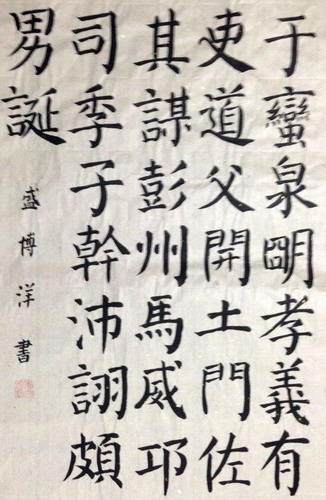 于蠻泉朙孝義有
吏道父開土門佐
其謀彭州馬威邛
司季子幹沛詡頗
男誕
盛博洋書